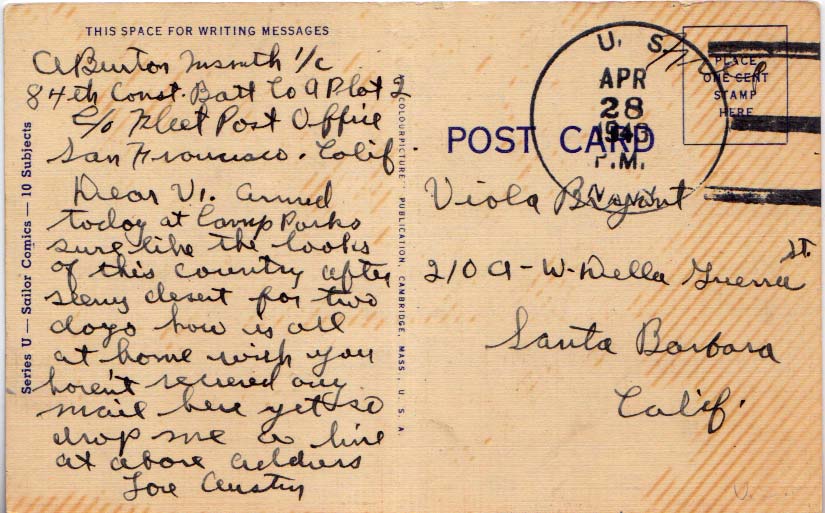 THIS SPACE FOR WRITING MESSAGES
A Burton 1/c
84th Const. Batt Co A Plat 2
c/o Fleet Post Office
San Francisco. Calif.
Dear Vi. arrived
today at Camp Parks
sure like the looks
of this country after
seeing desert for two
days how is all
at home wish you
haven't recieved any
mail here yet so
drop me a line
at above address
Love Austin
Series U — Sailor Comics — 10 Subjects
"COLOURPICTURE" PUBLICATION, CAMBRIDGE, MASS., U. S. A.
POST CARD
PLACE
ONE CENT
STAMP
HERE
U. S.
APR
28
1943
P.M.
NAVY
Viola Bryant
210 A - W. Della Guerra St.
Santa Barbara
Calif.